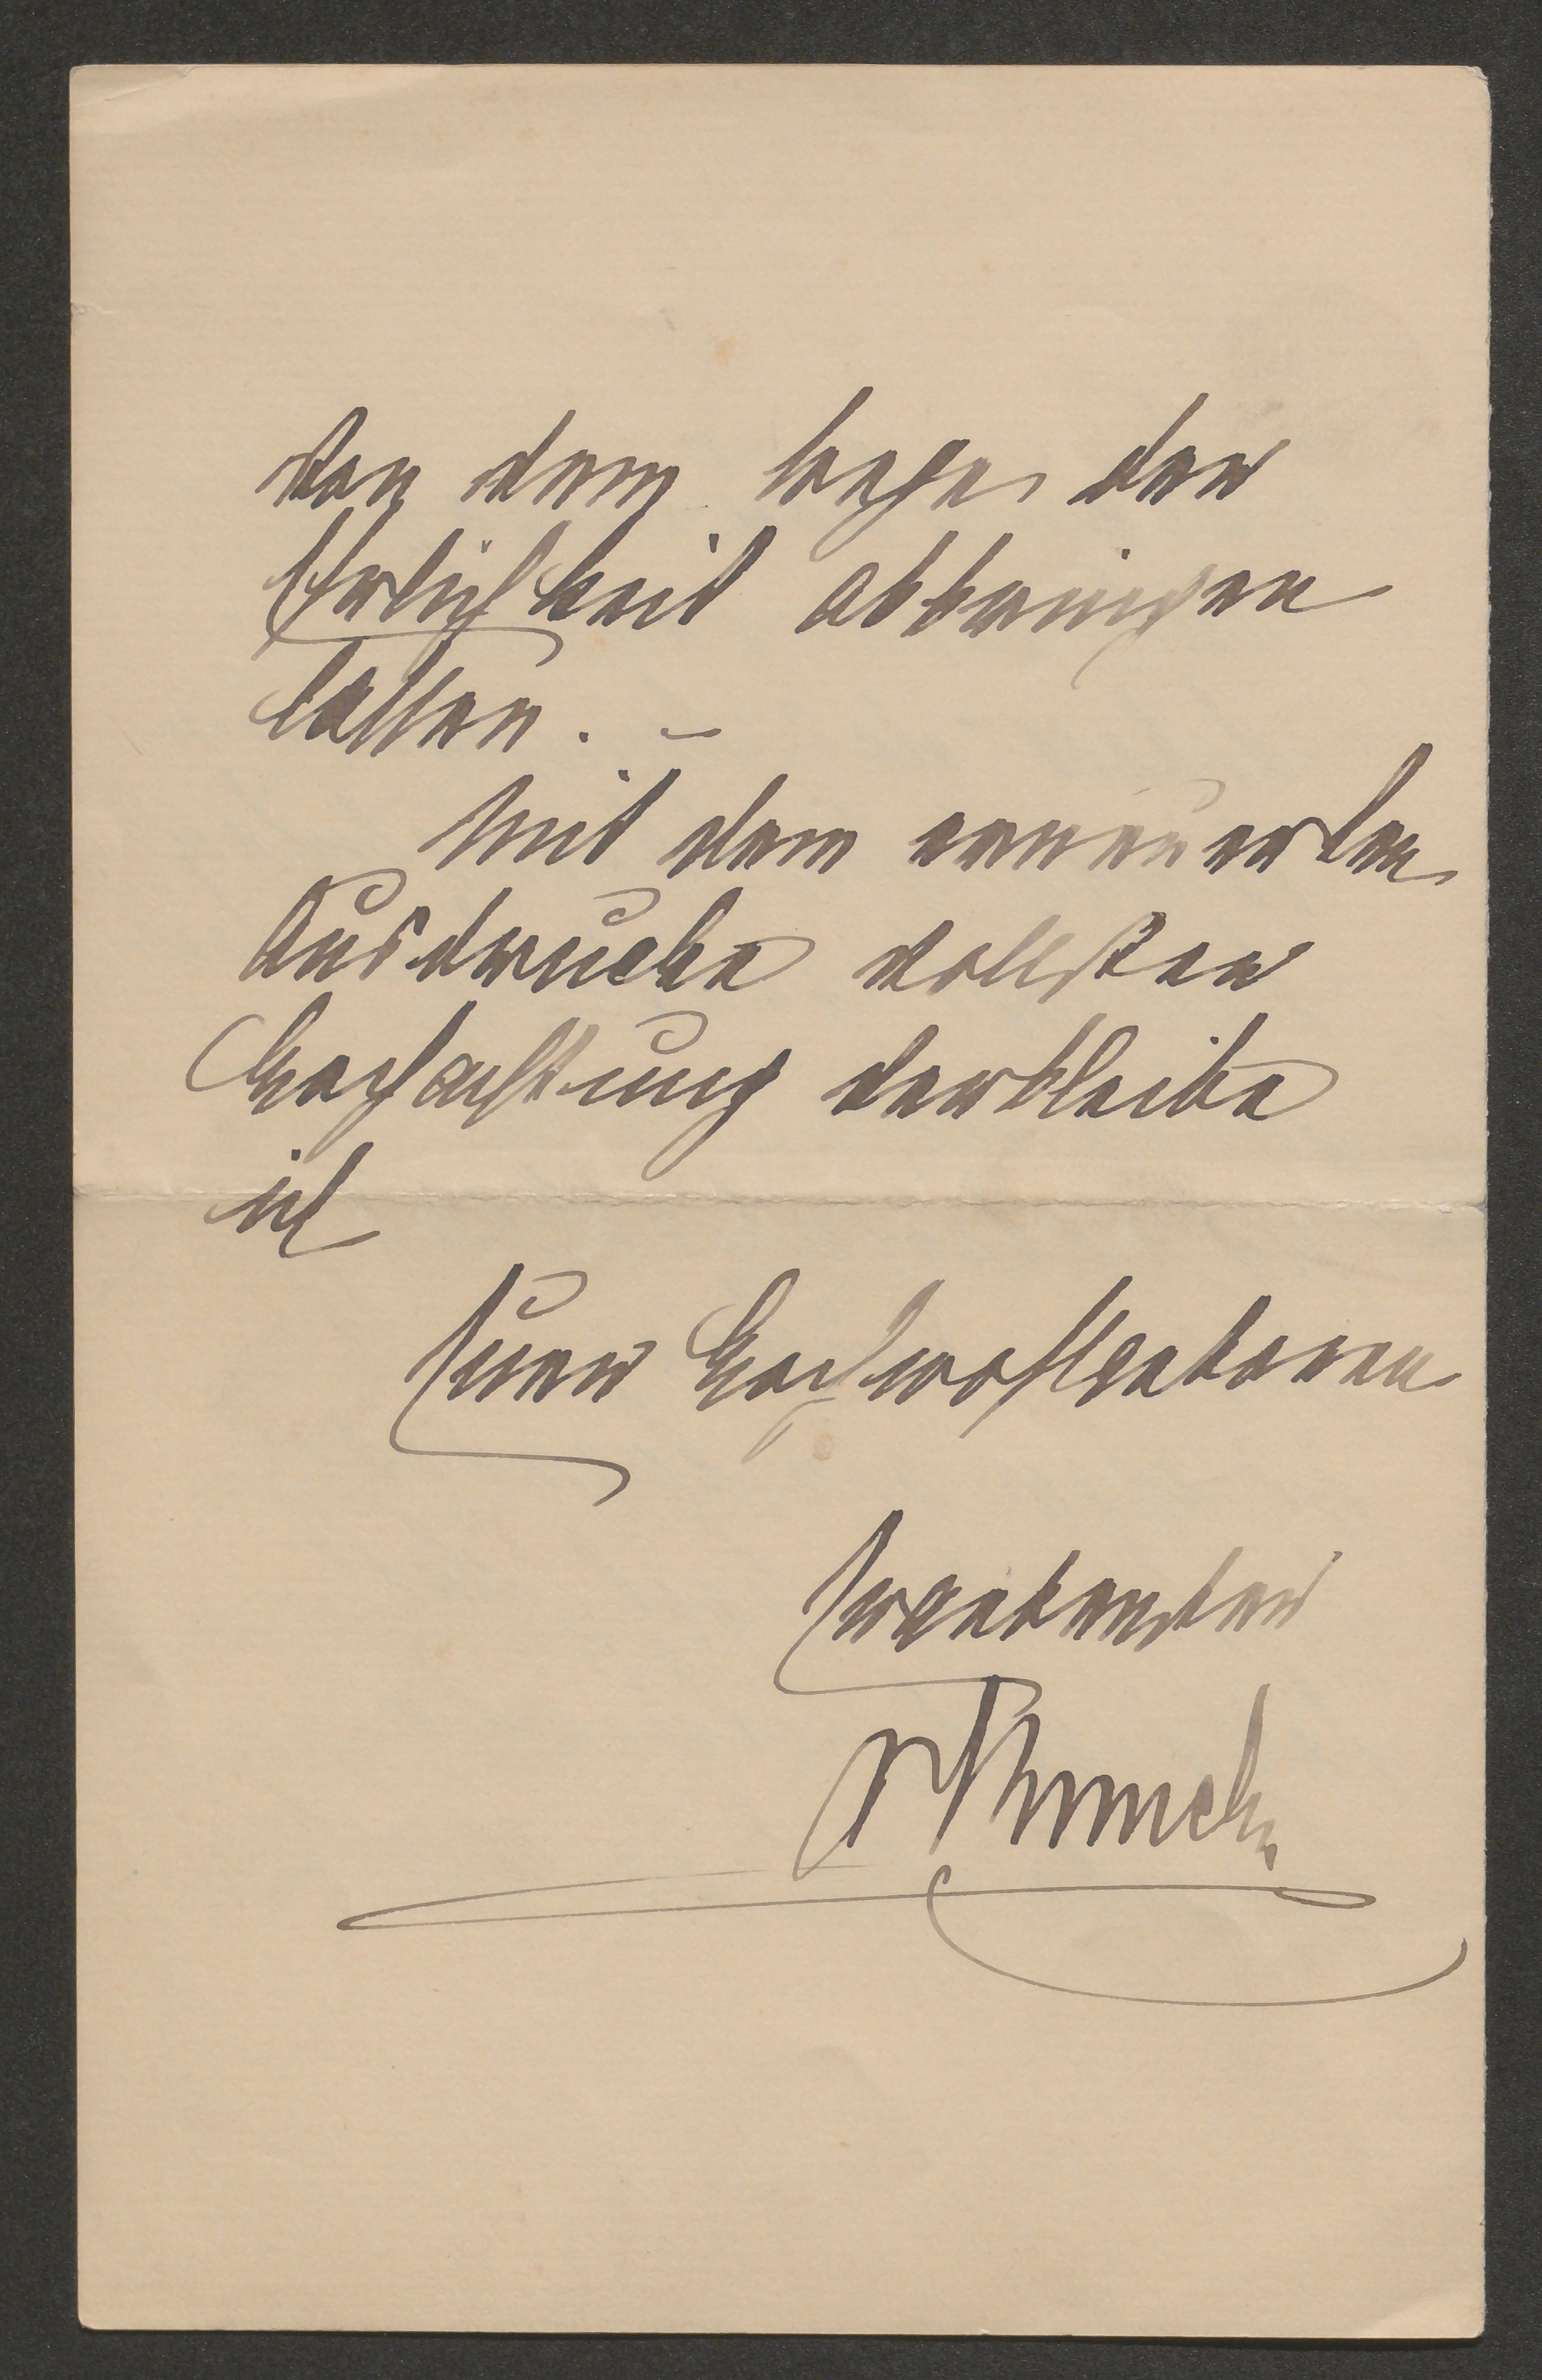 von dem Wege der
Ehrlichkeit abbringen
lassen. –
Mit dem erneuerten
Ausdrucke vollster
Hochachtung verbleibe
ich
Euer Hochwohlgeboren
Ergebenster